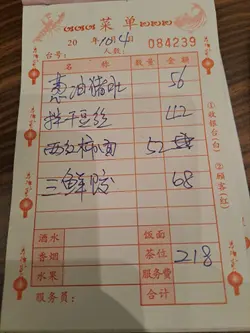 菜单
20 年 10/4
084239
台号： 人数：
名称 数量 金额
葱油猪肚 56
拌干豆丝 42
西红柿面 52
三鲜饺 68
酒水 饭面
香烟 茶位 218
水果 服务费
合计
服务员：
①收银台(白)
②顾客(红)